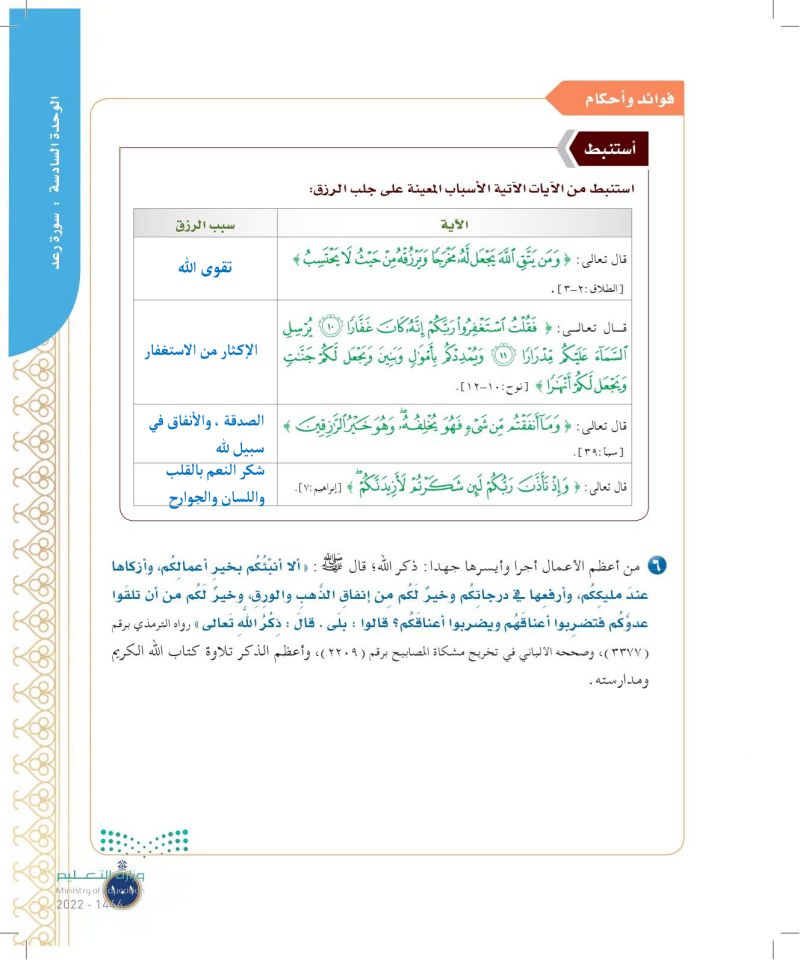 فوائد وأحكام
الوحدة السادسة : سورة رعد
أستنبط
استنبط من الآيات الآتية الأسباب المعينة على جلب الرزق:
الآية
سبب الرزق
قال تعالى: ﴿ وَمَن يَتَّقِ ٱللَّهَ يَجْعَل لَّهُۥ مَخْرَجًا وَيَرْزُقْهُ مِنْ حَيْثُ لَا يَحْتَسِبُ ﴾
[الطلاق:٢-٣] .
تقوى الله
قـال تعالـى: ﴿ فَقُلْتُ ٱسْتَغْفِرُوا۟ رَبَّكُمْ إِنَّهُۥ كَانَ غَفَّارًا ١٠ يُرْسِلِ
ٱلسَّمَآءَ عَلَيْكُم مِّدْرَارًا ١١ وَيُمْدِدْكُم بِأَمْوَٰلٍ وَبَنِينَ وَيَجْعَل لَّكُمْ جَنَّـٰتٍ
وَيَجْعَل لَّكُمْ أَنْهَـٰرًا ﴾ [نوح:١٠-١٢].
الإكثار من الاستغفار
قال تعالى: ﴿ وَمَآ أَنفَقْتُم مِّن شَىْءٍ فَهُوَ يُخْلِفُهُۥ ۖ وَهُوَ خَيْرُ ٱلرَّٰزِقِينَ ﴾
[سبأ:٣٩].
الصدقة ، والأنفاق في
سبيل لله
قال تعالى: ﴿ وَإِذْ تَأَذَّنَ رَبُّكُمْ لَئِن شَكَرْتُمْ لَأَزِيدَنَّكُمْ ۖ ﴾ [إبراهيم:٧].
شكر النعم بالقلب
واللسان والجوارح
٦ من أعظم الأعمال أجرا وأيسرها جهدا: ذكر الله؛ قال ﷺ : «ألا أنبِّئُكُم بخيرِ أعمالِكُم، وأزكاها
عندَ مليكِكُم، وأرفعِها في درجاتِكُم وخيرٌ لَكُم مِن إنفاقِ الذَّهبِ والورِقِ، وخيرٌ لَكُم من أن تلقَوا
عدوَّكُم فتضرِبوا أعناقَهُم ويضرِبوا أعناقَكُم؟ قالوا : بلَى . قالَ : ذِكْرُ اللَّهِ تَعالى» رواه الترمذي برقم
(٣٣٧٧)، وصححه الالباني في تخريج مشكاة المصابيح برقم (٢٢٠٩)، وأعظم الذكر تلاوة كتاب الله الكريم
ومدارسته .
وزارة التعـــليم
Ministry of Education
2022 - 1444